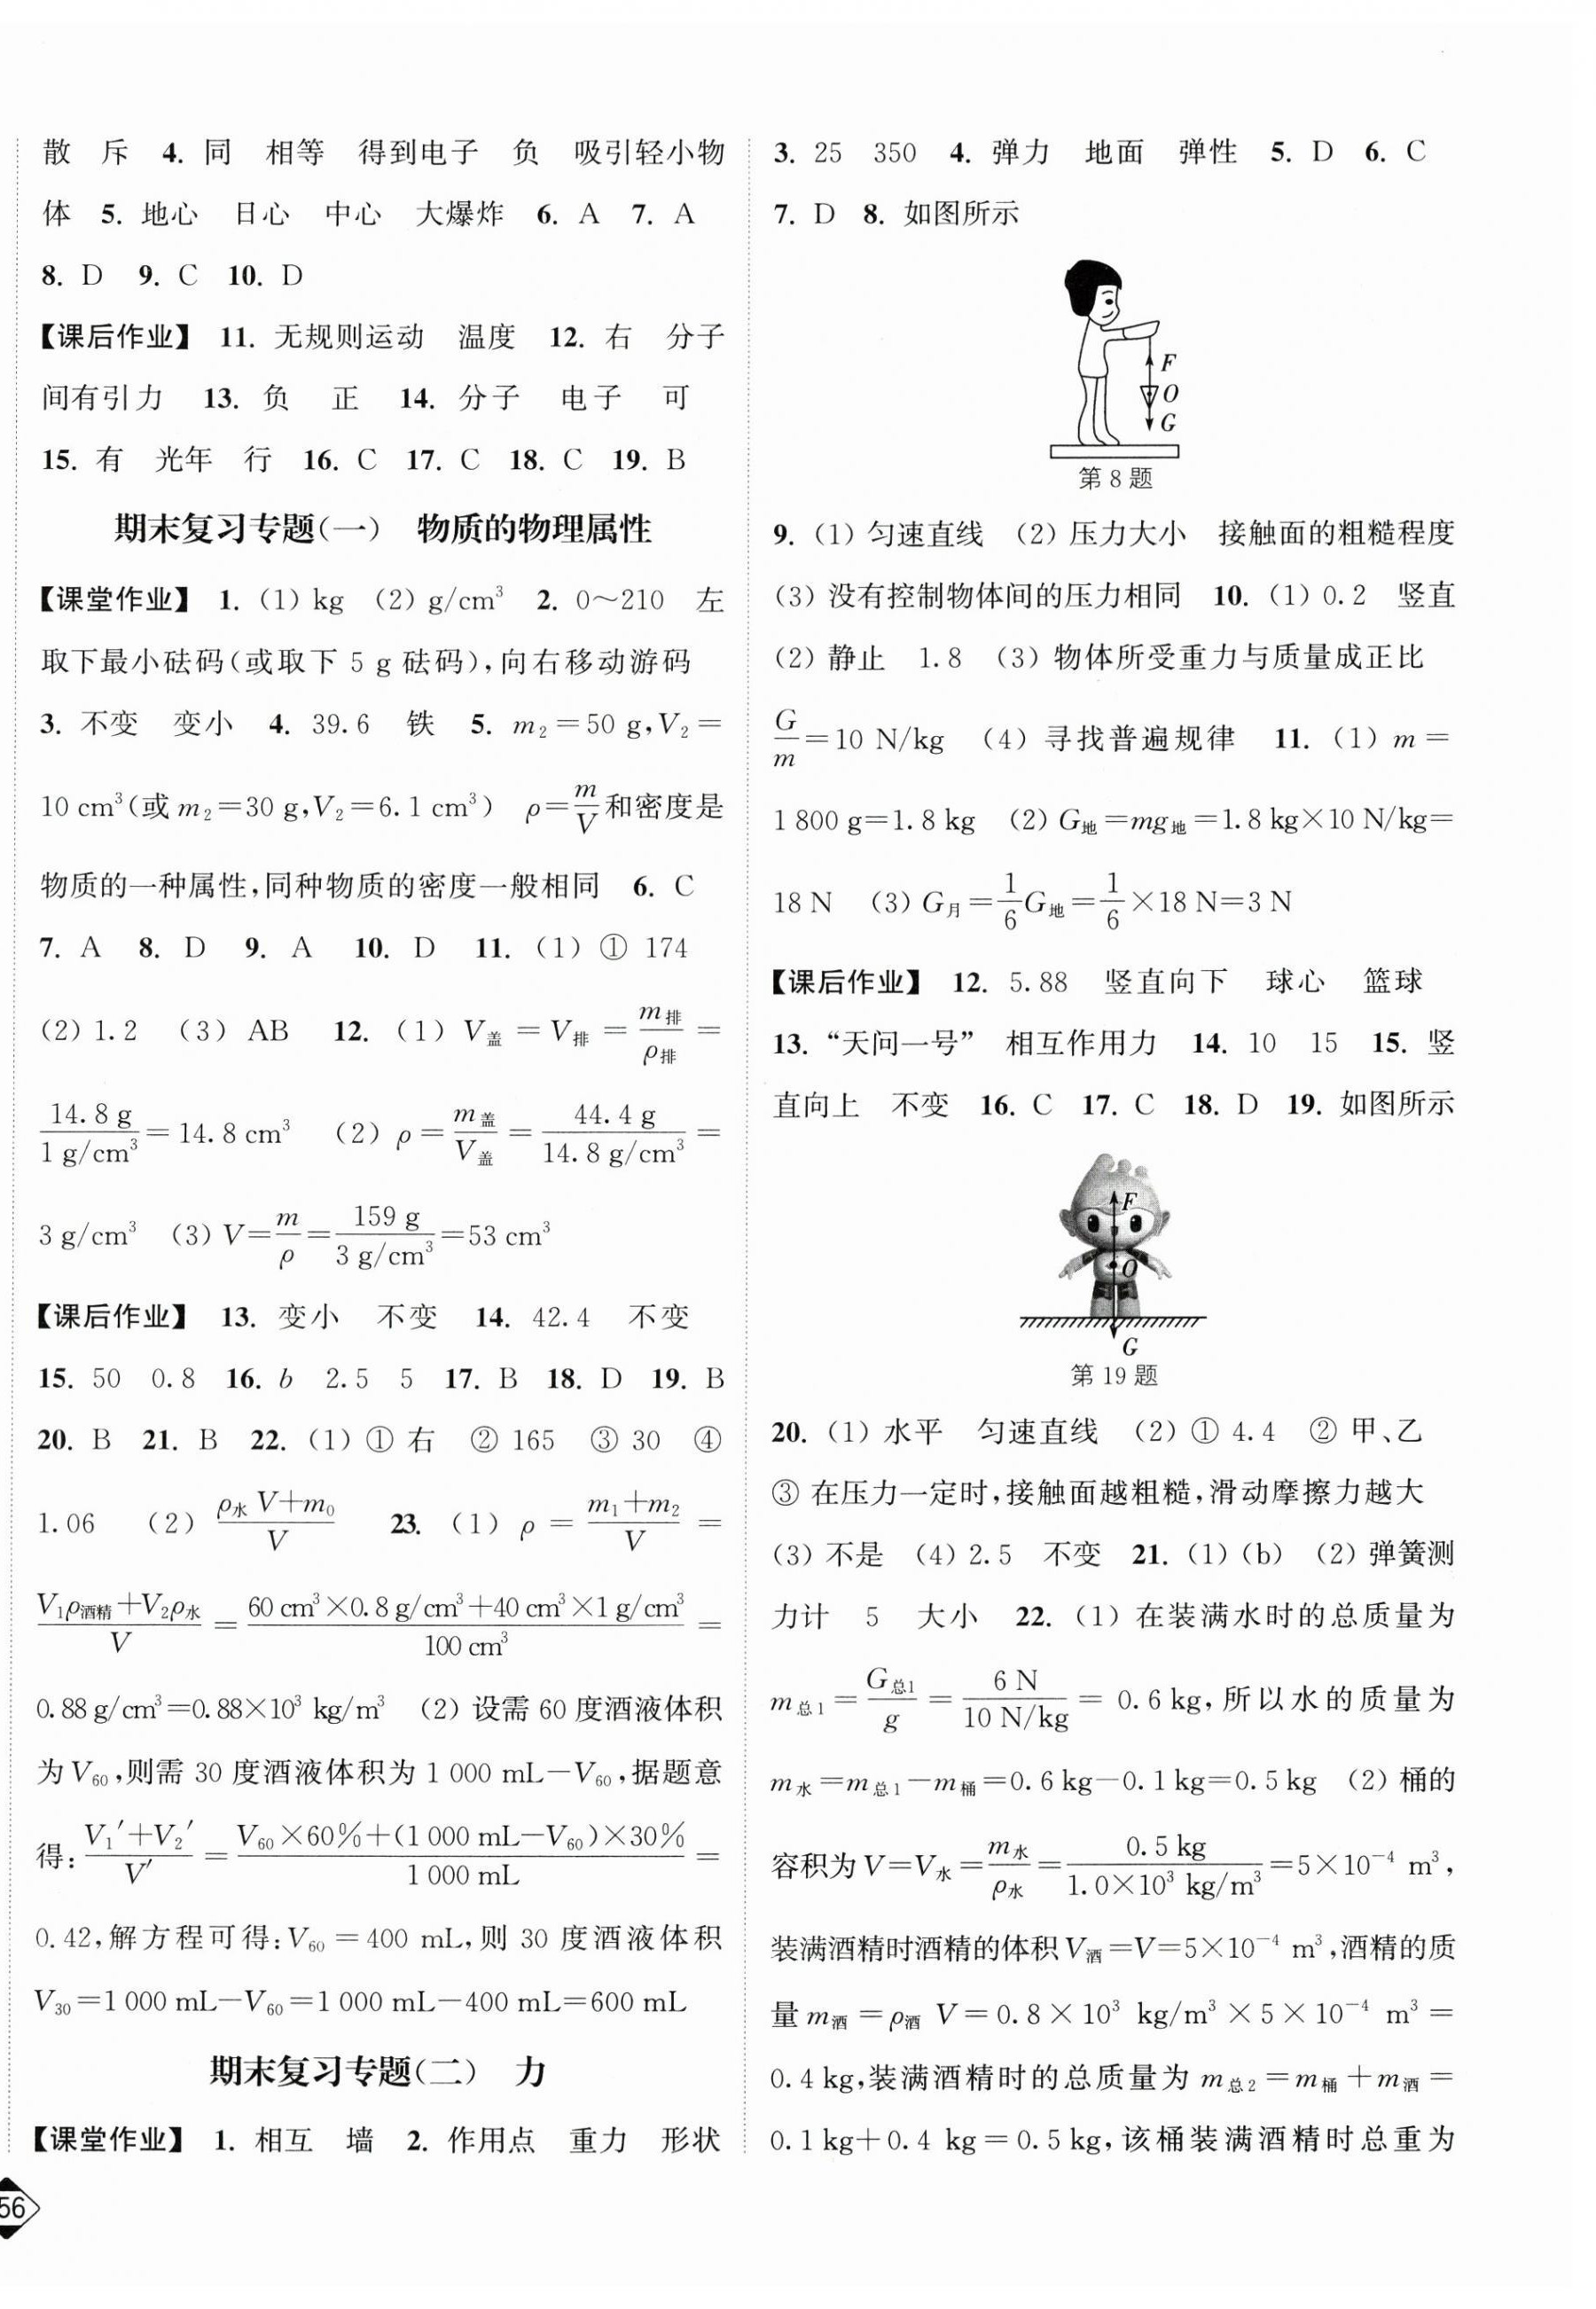 散 斥 4. 同 相等 得到电子 负 吸引轻小物
体 5. 地心 日心 中心 大爆炸 6. A 7. A
8. D 9. C 10. D
【课后作业】 11. 无规则运动 温度 12. 右 分子
间有引力 13. 负 正 14. 分子 电子 可
15. 有 光年 行 16. C 17. C 18. C 19. B
期末复习专题(一) 物质的物理属性
【课堂作业】 1. (1) kg (2) g/cm³ 2. 0～210 左
取下最小砝码(或取下 5 g 砝码),向右移动游码
3. 不变 变小 4. 39.6 铁 5. m₂=50 g,V₂=
10 cm³(或 m₂=30 g,V₂=6.1 cm³) ρ=m/V和密度是
物质的一种属性,同种物质的密度一般相同 6. C
7. A 8. D 9. A 10. D 11. (1) ① 174
(2) 1.2 (3) AB 12. (1) V盖=V排=m排/ρ排=
14.8 g/1 g/cm³=14.8 cm³ (2) ρ=m盖/V盖=44.4 g/14.8 g/cm³=
3 g/cm³ (3) V=m/ρ=159 g/3 g/cm³=53 cm³
【课后作业】 13. 变小 不变 14. 42.4 不变
15. 50 0.8 16. b 2.5 5 17. B 18. D 19. B
20. B 21. B 22. (1) ① 右 ② 165 ③ 30 ④
1.06 (2) ρ水V+m₀/V 23. (1) ρ=m₁+m₂/V=
V₁ρ酒精+V₂ρ水/V=60 cm³×0.8 g/cm³+40 cm³×1 g/cm³/100 cm³=
0.88 g/cm³=0.88×10³ kg/m³ (2) 设需 60 度酒液体积
为 V₆₀,则需 30 度酒液体积为 1 000 mL－V₆₀,据题意
得:V₁′+V₂′/V′=V₆₀×60%+(1 000 mL－V₆₀)×30%/1 000 mL=
0.42,解方程可得:V₆₀=400 mL,则 30 度酒液体积
V₃₀=1 000 mL－V₆₀=1 000 mL－400 mL=600 mL
期末复习专题(二) 力
【课堂作业】 1. 相互 墙 2. 作用点 重力 形状
56
3. 25 350 4. 弹力 地面 弹性 5. D 6. C
7. D 8. 如图所示
F
O
G
第 8 题
9. (1) 匀速直线 (2) 压力大小 接触面的粗糙程度
(3) 没有控制物体间的压力相同 10. (1) 0.2 竖直
(2) 静止 1.8 (3) 物体所受重力与质量成正比
G/m=10 N/kg (4) 寻找普遍规律 11. (1) m=
1 800 g=1.8 kg (2) G地=mg地=1.8 kg×10 N/kg=
18 N (3) G月=1/6G地=1/6×18 N=3 N
【课后作业】 12. 5.88 竖直向下 球心 篮球
13. “天问一号” 相互作用力 14. 10 15 15. 竖
直向上 不变 16. C 17. C 18. D 19. 如图所示
F
O
G
第 19 题
20. (1) 水平 匀速直线 (2) ① 4.4 ② 甲、乙
③ 在压力一定时,接触面越粗糙,滑动摩擦力越大
(3) 不是 (4) 2.5 不变 21. (1) (b) (2) 弹簧测
力计 5 大小 22. (1) 在装满水时的总质量为
m总1=G总1/g=6 N/10 N/kg=0.6 kg,所以水的质量为
m水=m总1－m桶=0.6 kg－0.1 kg=0.5 kg (2) 桶的
容积为 V=V水=m水/ρ水=0.5 kg/1.0×10³ kg/m³=5×10⁻⁴ m³,
装满酒精时酒精的体积 V酒=V=5×10⁻⁴ m³,酒精的质
量 m酒=ρ酒V=0.8×10³ kg/m³×5×10⁻⁴ m³=
0.4 kg,装满酒精时的总质量为 m总2=m桶+m酒=
0.1 kg+0.4 kg=0.5 kg,该桶装满酒精时总重为